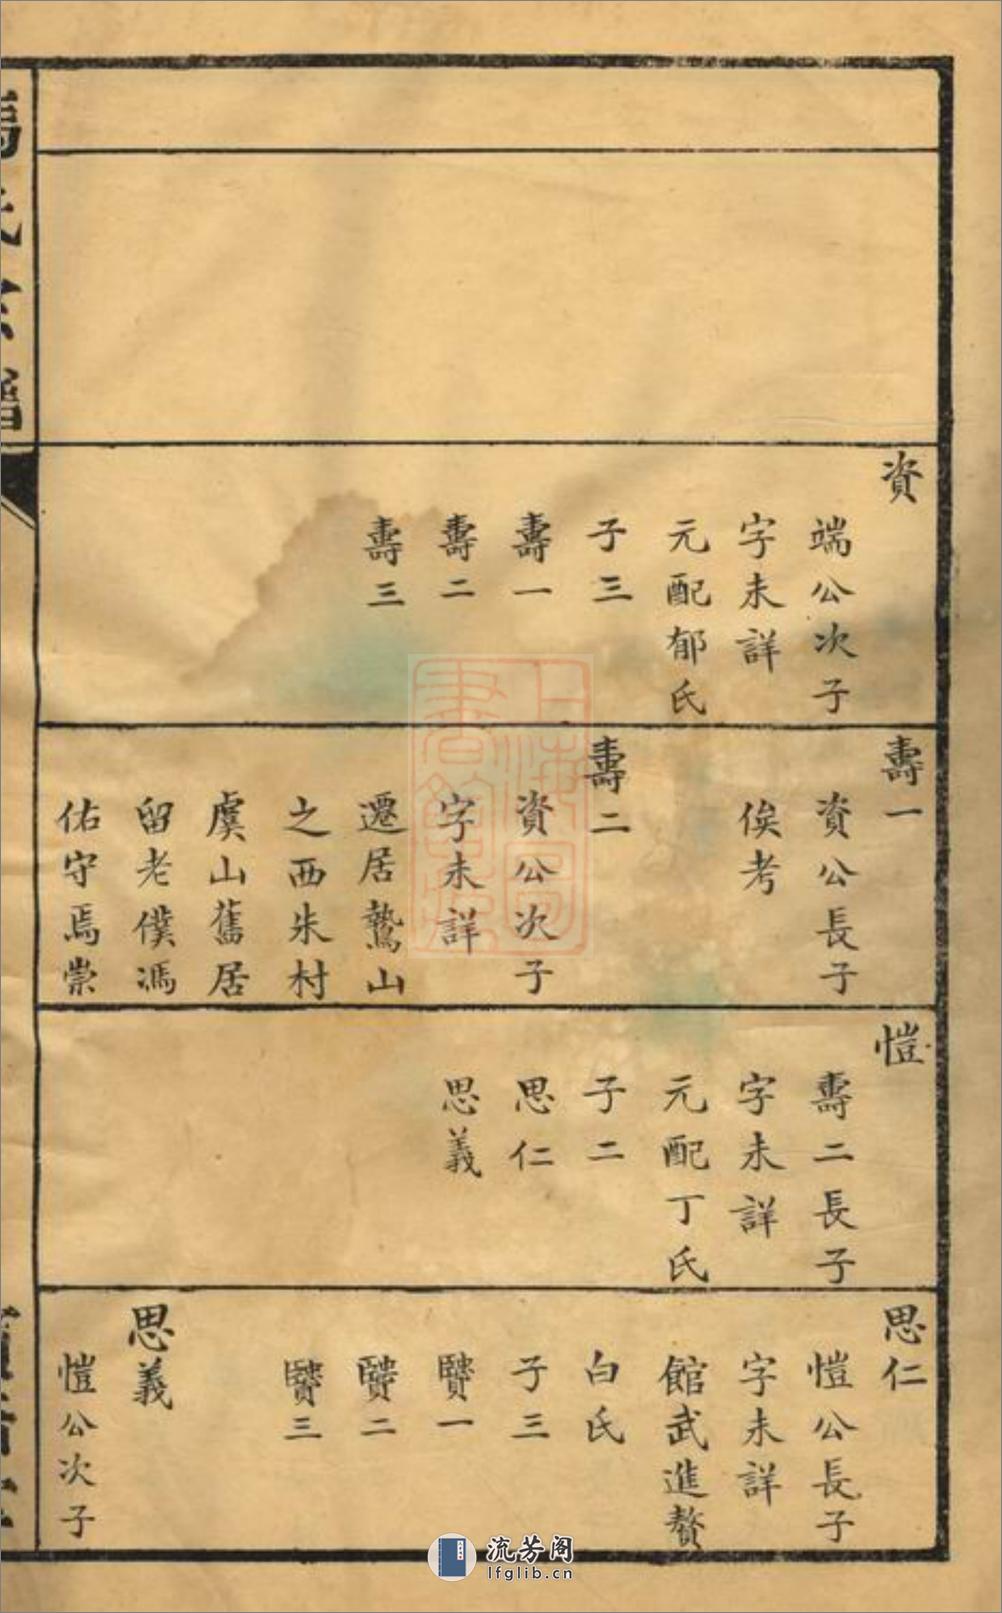 資
端公次子
字未詳
元配郁氏
子三
壽一
壽二
壽三
壽一
資公長子
俟考
壽二
資公次子
字未詳
遷居鷲山
之西朱村
虞山舊居
留老僕馮
佑守焉崇
愷
壽二長子
字未詳
元配丁氏
子二
思仁
思義
思仁
愷公長子
字未詳
館武進贅
白氏
子三
賢一
賢二
賢三
思義
愷公次子
上海圖
書館藏
流芳阁
lfglib.cn